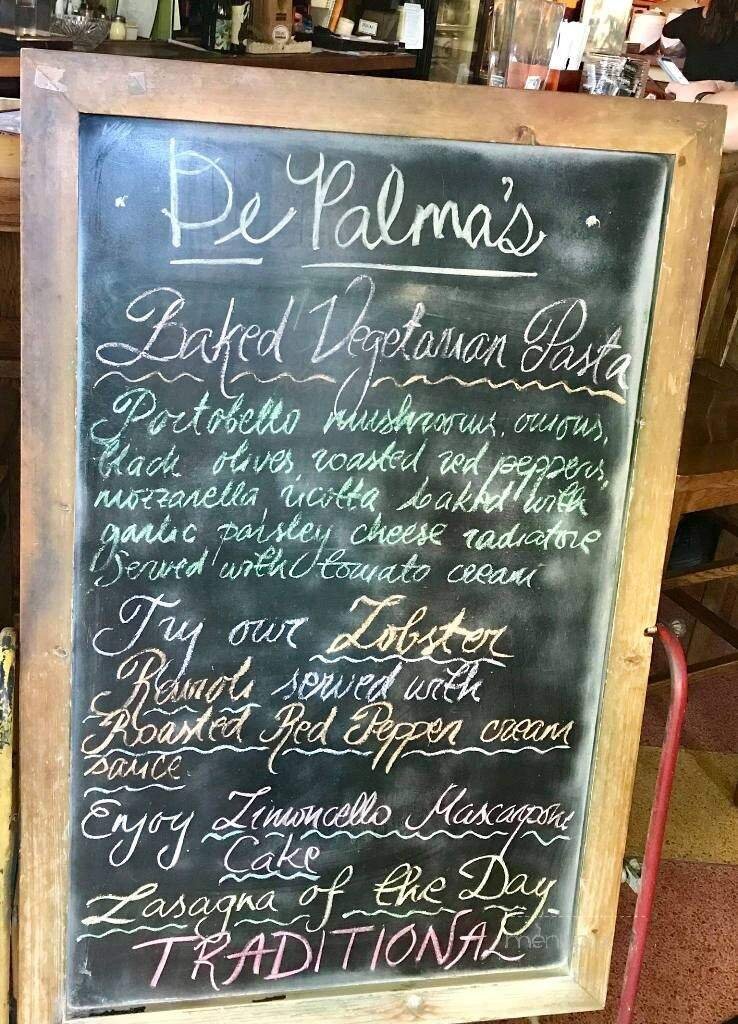 De Palma's
Baked Vegetarian Pasta
Portobello mushrooms, onions,
black olives roasted red peppers,
mozzarella, ricotta baked with
garlic parsley cheese radiatore
Served with tomato cream
Try our Lobster
Ravioli served with
Roasted Red Pepper cream
sauce
Enjoy Limoncello Mascarpone
Cake
Lasagna of the Day
TRADITIONAL